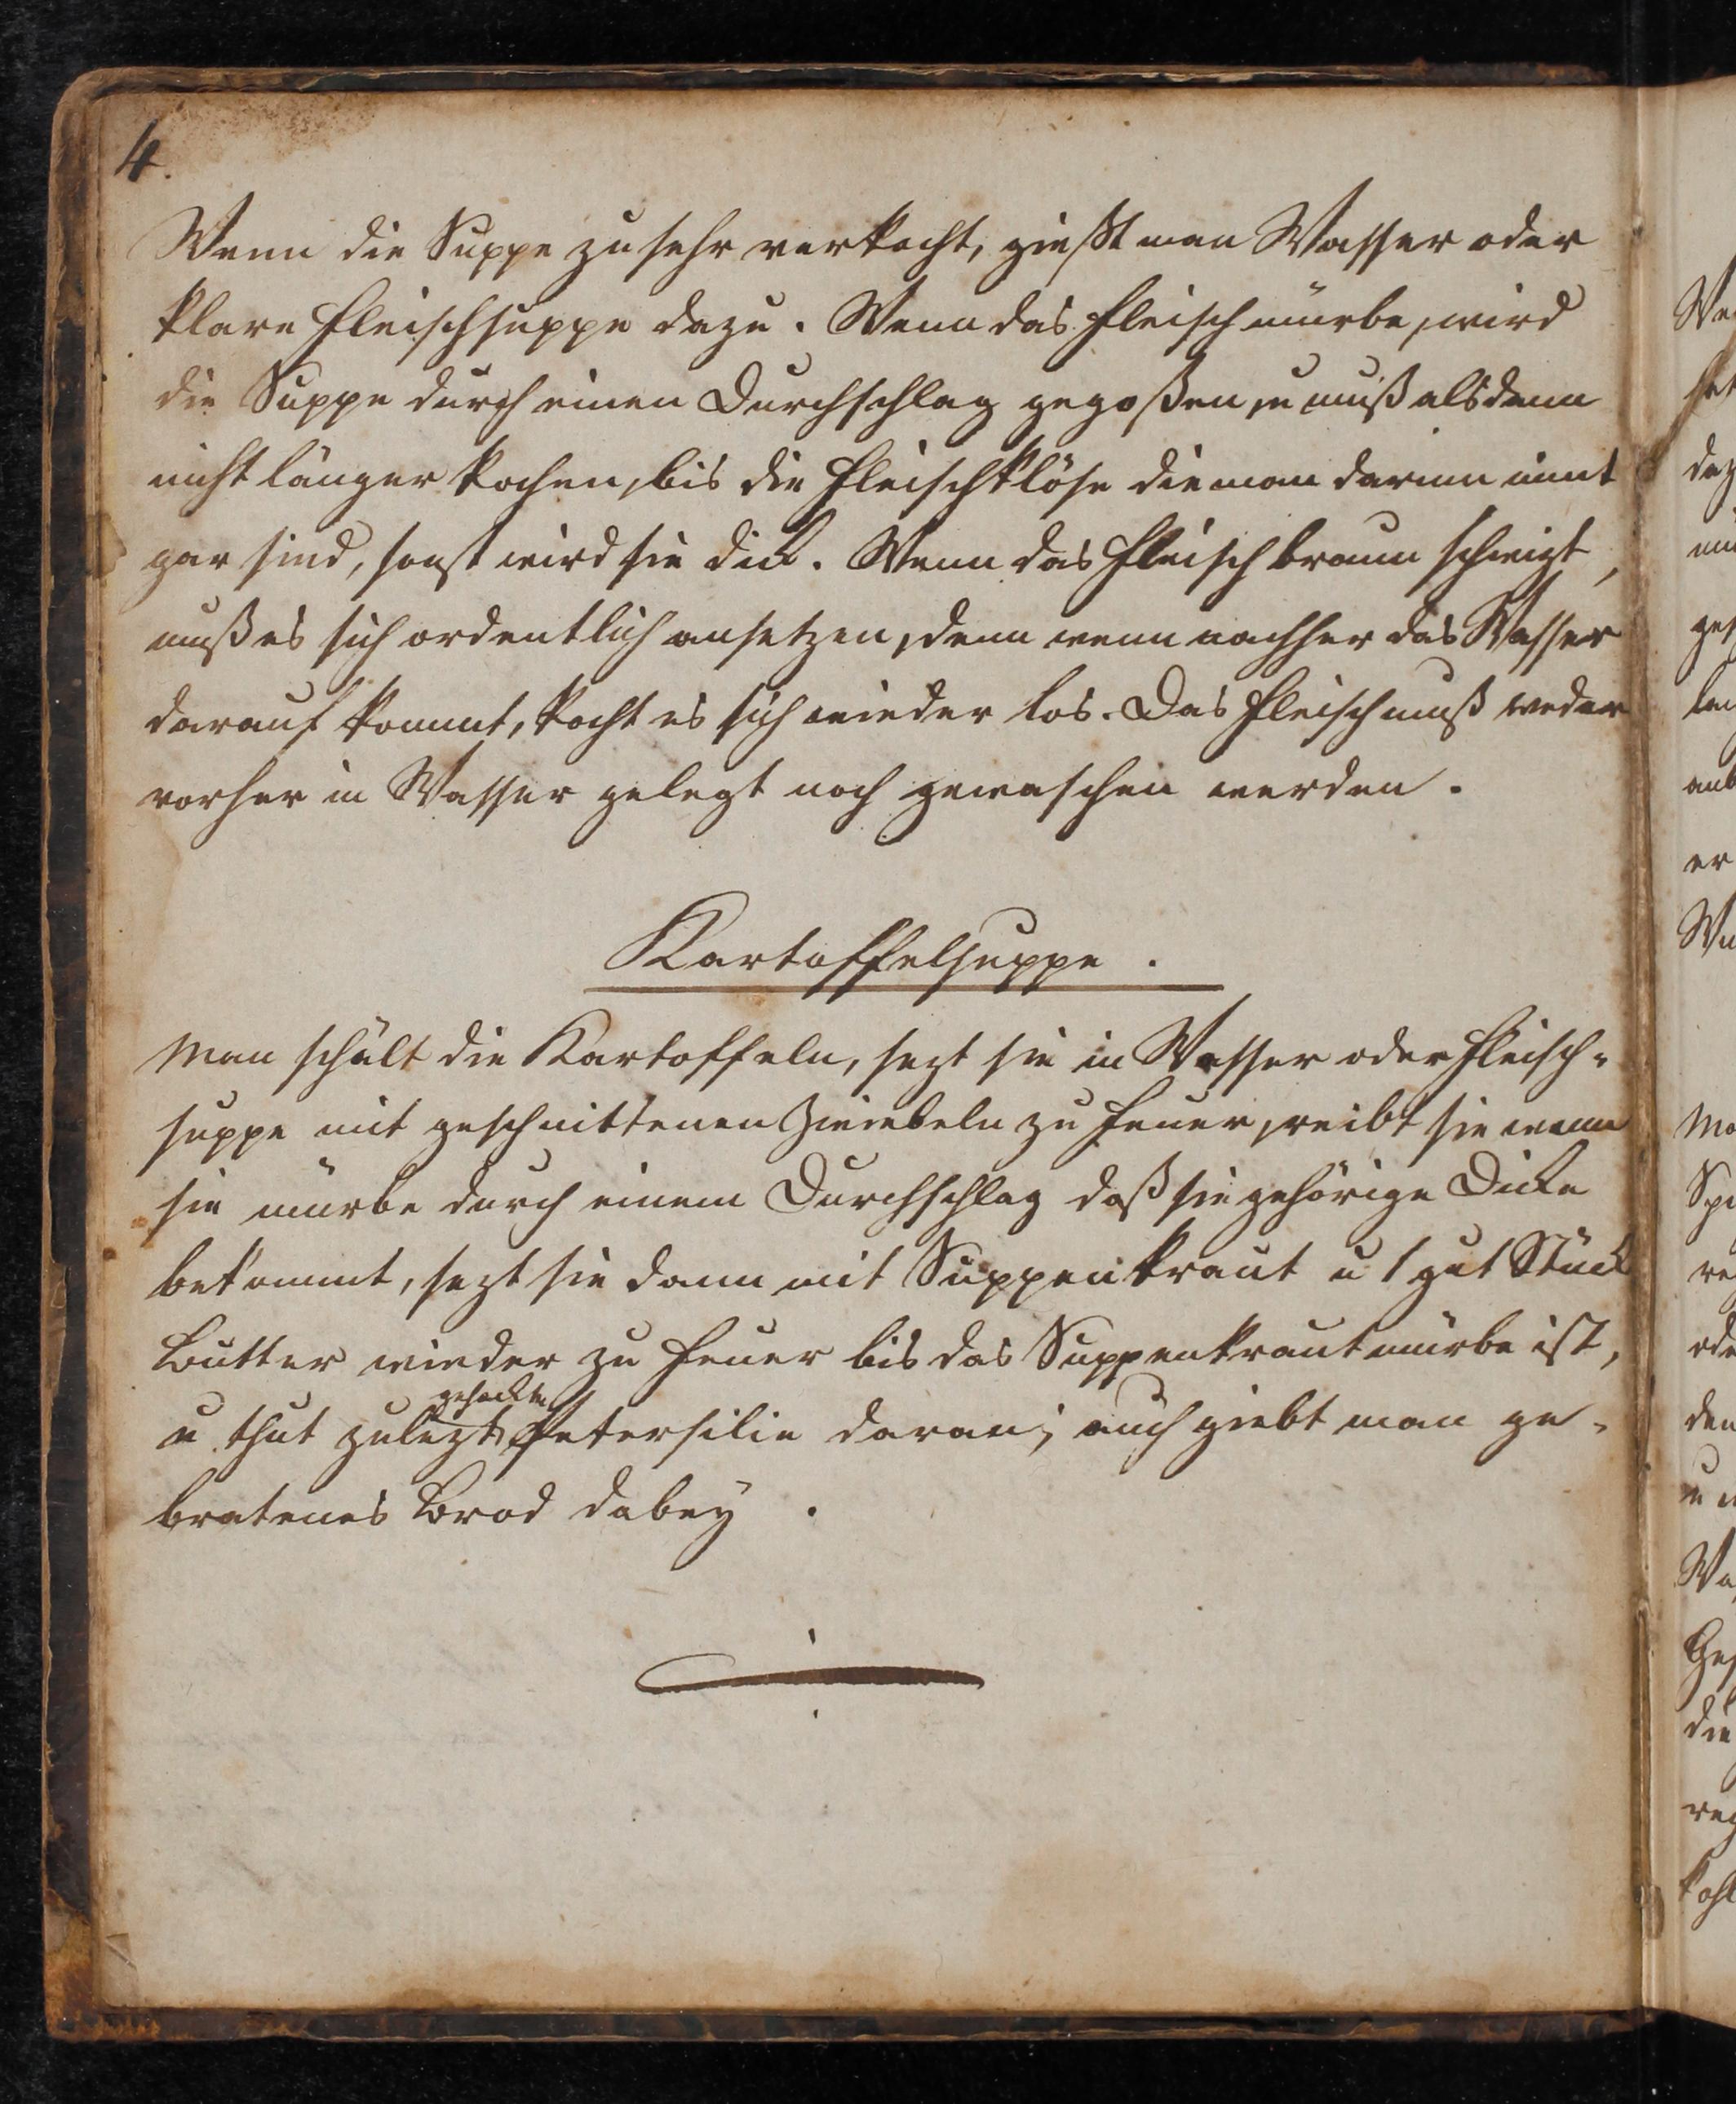 4.
Wenn die Suppe zu sehr verkocht, gießt man Wasser oder
klare Fleischsuppe dazu. Wenn das Fleisch mürbe, wird
die Suppe durch einen Durchschlag gegoßen, u muß alsdann
nicht länger kochen, bis die Fleischklöse die man darinn
gar sind, sonst wird sie dick. Wenn das Fleisch braun schwizt,
muß es sich ordentlich ansetzen, denn wenn nachher das Wasser
darauf kommt, kocht es sich wieder los. Das Fleisch muß weder
vorher in Wasser gelegt noch gewaschen werden.
Kartoffelsuppe.
Man schält die Kartoffeln, sezt sie in Wasser oder Fleisch-
suppe mit geschnittenen Zwiebeln zu Feuer, reibt sie wenn
sie mürbe durch einem Durchschlag daß sie gehörige Dicke
bekommt, sezt sie dann mit Suppenkraut u 1 gut Stück
Butter wieder zu Feuer bis das Suppenkraut mürbe ist,
gehackte
u thut zulezt Petersilie daran; auch giebt man ge-
bratenes Brod dabey.